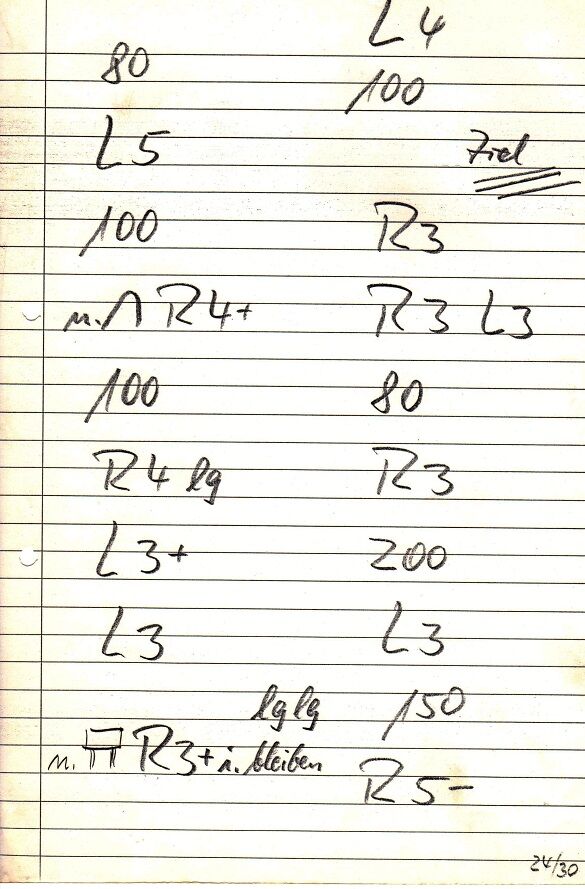 80
L5
100
n. ∩ R4+
100
R4 lg
L3+
L3
lg lg
n. R3+ i. bleiben
L4
100
Ziel
R3
R3 L3
80
R3
200
L3
150
R5-
24/30